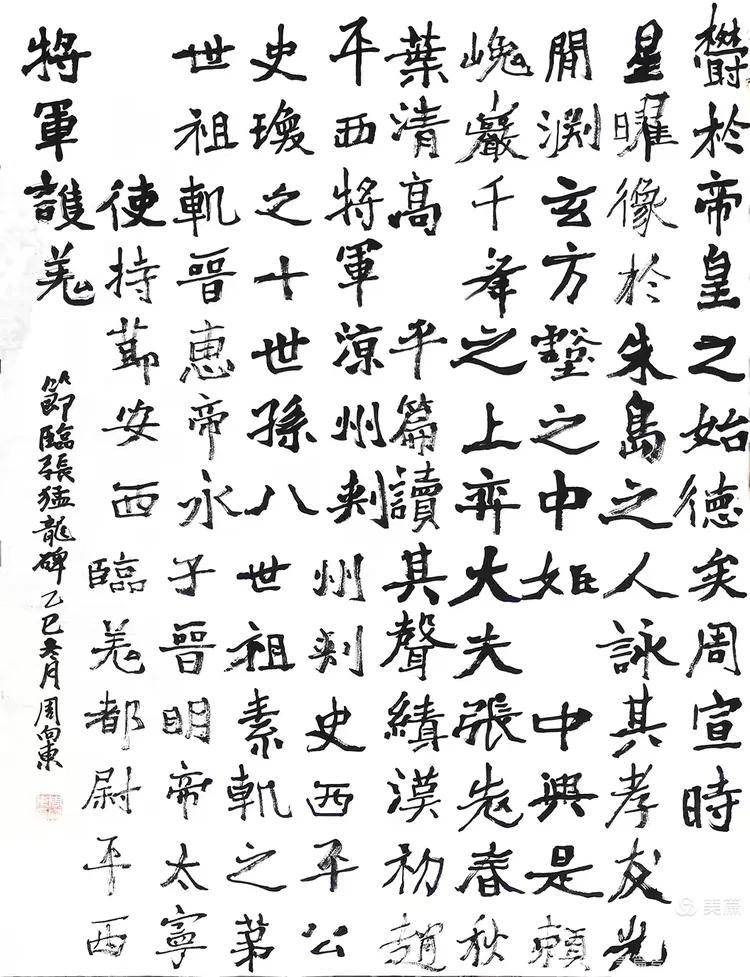 欝於帝皇之始德矣周宣時
星曜像於朱鳥之人詠其孝友光
閒淵玄方壑之中姬 中興是賴
巍巖千峯之上弈大夫張老春秋
葉清高 平篇讀其聲績漢初趙
平西將軍涼州刾州刾史西平公
史瓊之十世孫八世祖素軌之第
世祖軌晉惠帝永子晉明帝太寧
使持節安西臨羌都尉平西
將軍護羌
節臨張猛龍碑乙巳冬月周向東
美篇